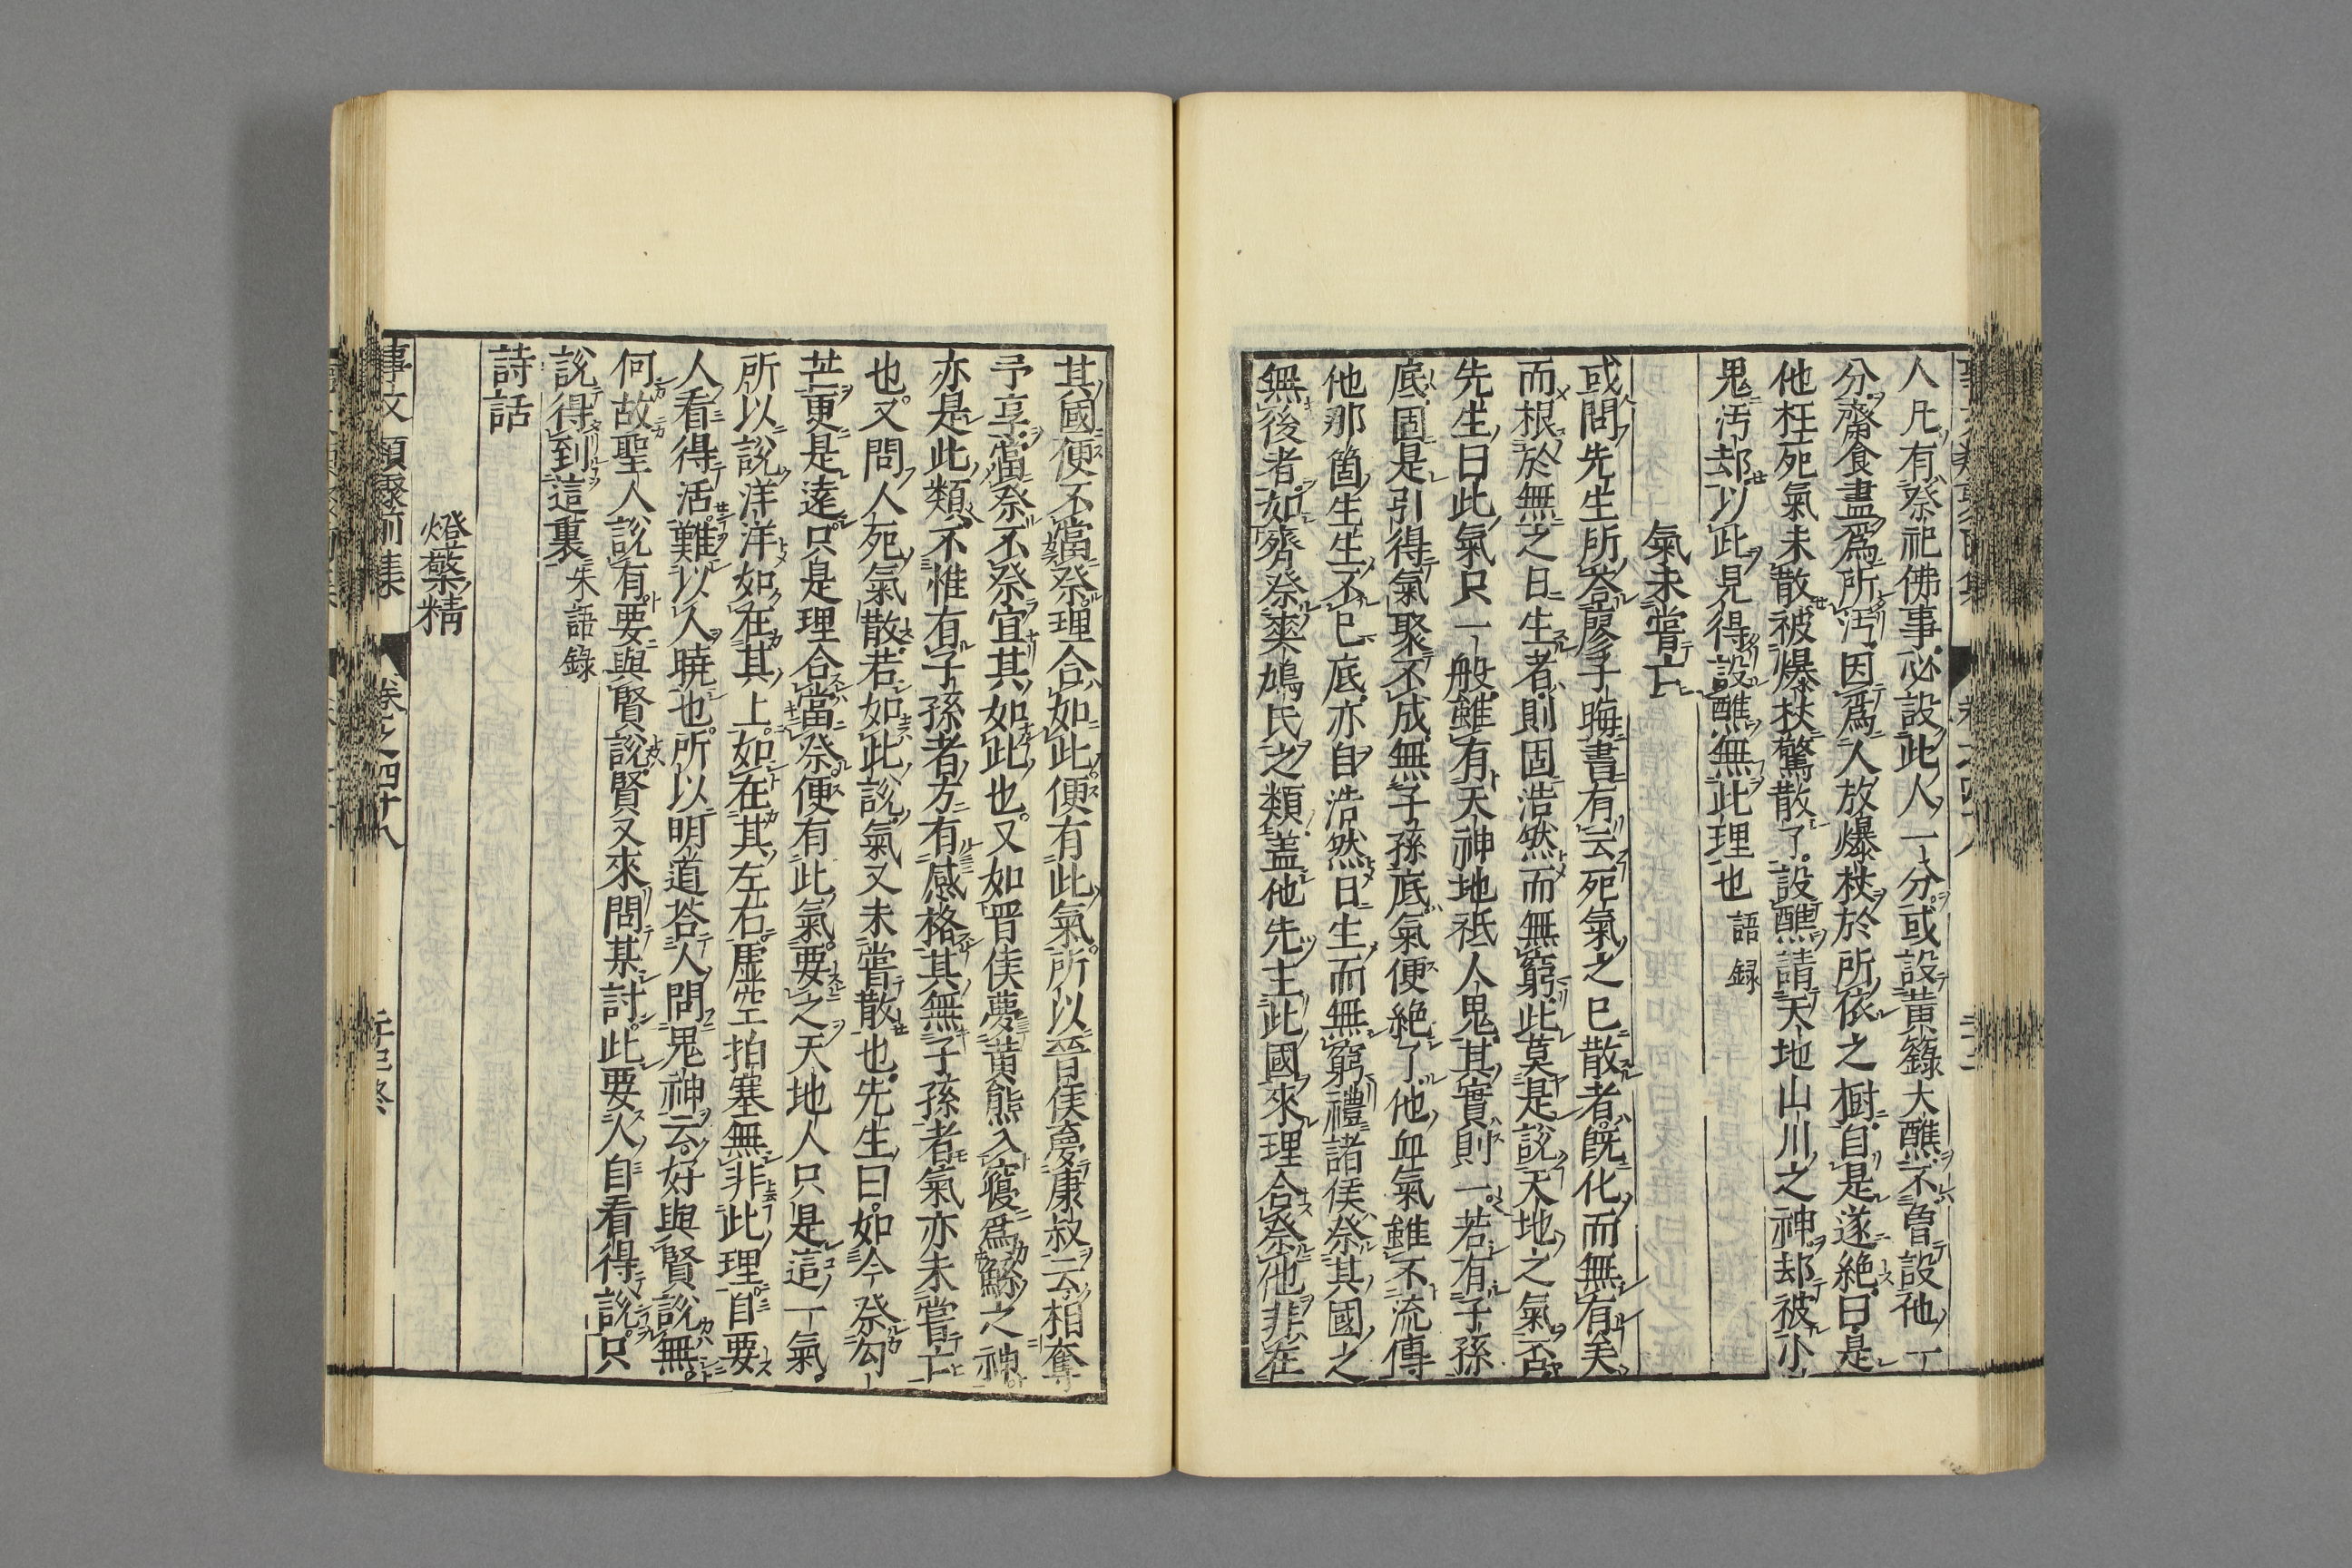 人凡有祭祀佛事必設此人一分或設黃籙大醮不曾設他一
分齋食盡爲所汚因爲人放爆杖於所依之樹自是遂絶曰是
他枉死氣未散被爆杖驚散了設醮請天地山川之神却被小
鬼汚却以此見得設醮無此理也 語録
氣未嘗亡
或問先生所荅廖子晦書有云死氣之巳散者旣化而無有矣
而根於無之日生者則固浩然而無窮此莫是說天地之氣否
先生曰此氣只一般雖有天神地祇人鬼其實則一若有子孫
底固是引得氣聚不成無子孫底氣便絶了他血氣雖不流傳
他那箇生生不已底亦自浩然日生而無窮禮諸侯祭其國之
無後者如齊祭爽鳩氏之類蓋他先主此國來理合祭他非在
其國便不當祭理合如此便有此氣所以晉侯夢康叔云相奪
予享當祭不祭宜其如此也又如晋侯夢黃熊入寢爲鯀之神
亦是此類不惟有子孫者方有感格其無子孫者氣亦未嘗亡
也又問人死氣散若如此說氣又未嘗散也先生曰如今祭勾
芒更是逺只是理合當祭便有此氣要之天地人只是這一氣
所以說洋洋如在其上如在其左右虛空拍塞無非此理自要
人看得活難以人曉也所以明道荅人問鬼神云好與賢說無
何故聖人說有要與賢說賢又來問某討此要人自看得說只
說得到這裏 朱語錄
詩話
燈檠精
事文類聚前集 卷之四十八